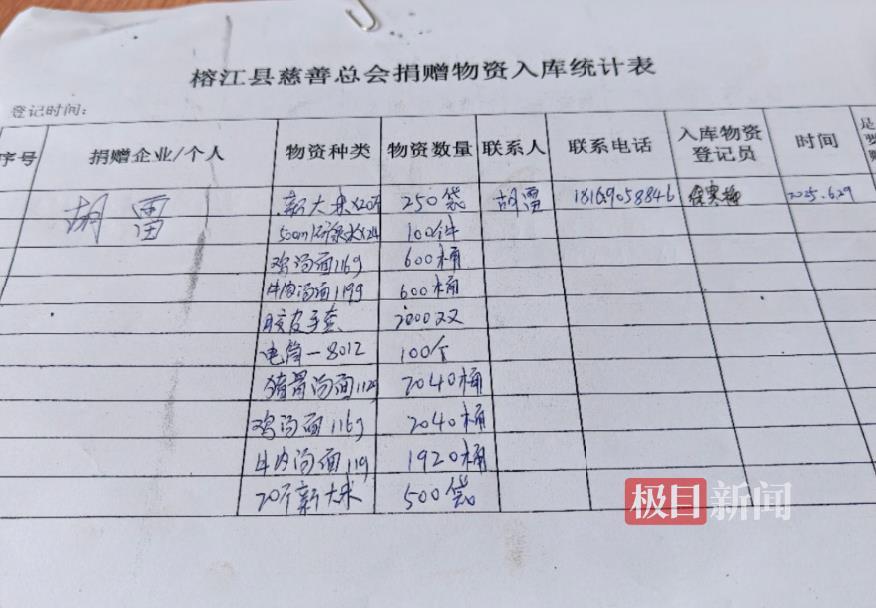 榕江县慈善总会捐赠物资入库统计表
登记时间:
序号 捐赠企业/个人 物资种类 物资数量 联系人 联系电话 入库物资登记员 时间 是
胡雷 新大米X20斤 250袋 胡雷 18169058846 2025.6.29
500ml X24 100件
鸡汤面116g 600桶
牛肉汤面119g 600桶
胶皮手套 2000双
电筒-8012 100个
猪骨汤面112g 2040桶
鸡汤面116g 2040桶
牛肉汤面119 1920桶
20斤新大米 500袋
极目新闻